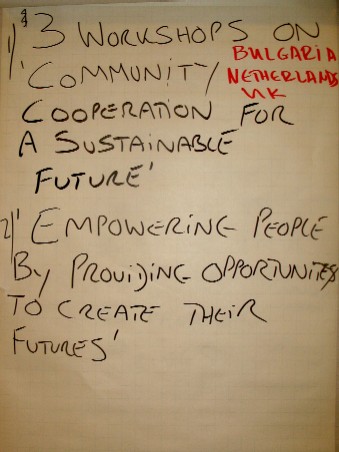 1) 3 WORKSHOPS ON
BULGARIA
NETHERLANDS
UK
'COMMUNITY
COOPERATION FOR
A SUSTAINABLE
FUTURE'
2) 'EMPOWERING PEOPLE
BY PROVIDING OPPORTUNITES
TO CREATE THEIR
FUTURES'